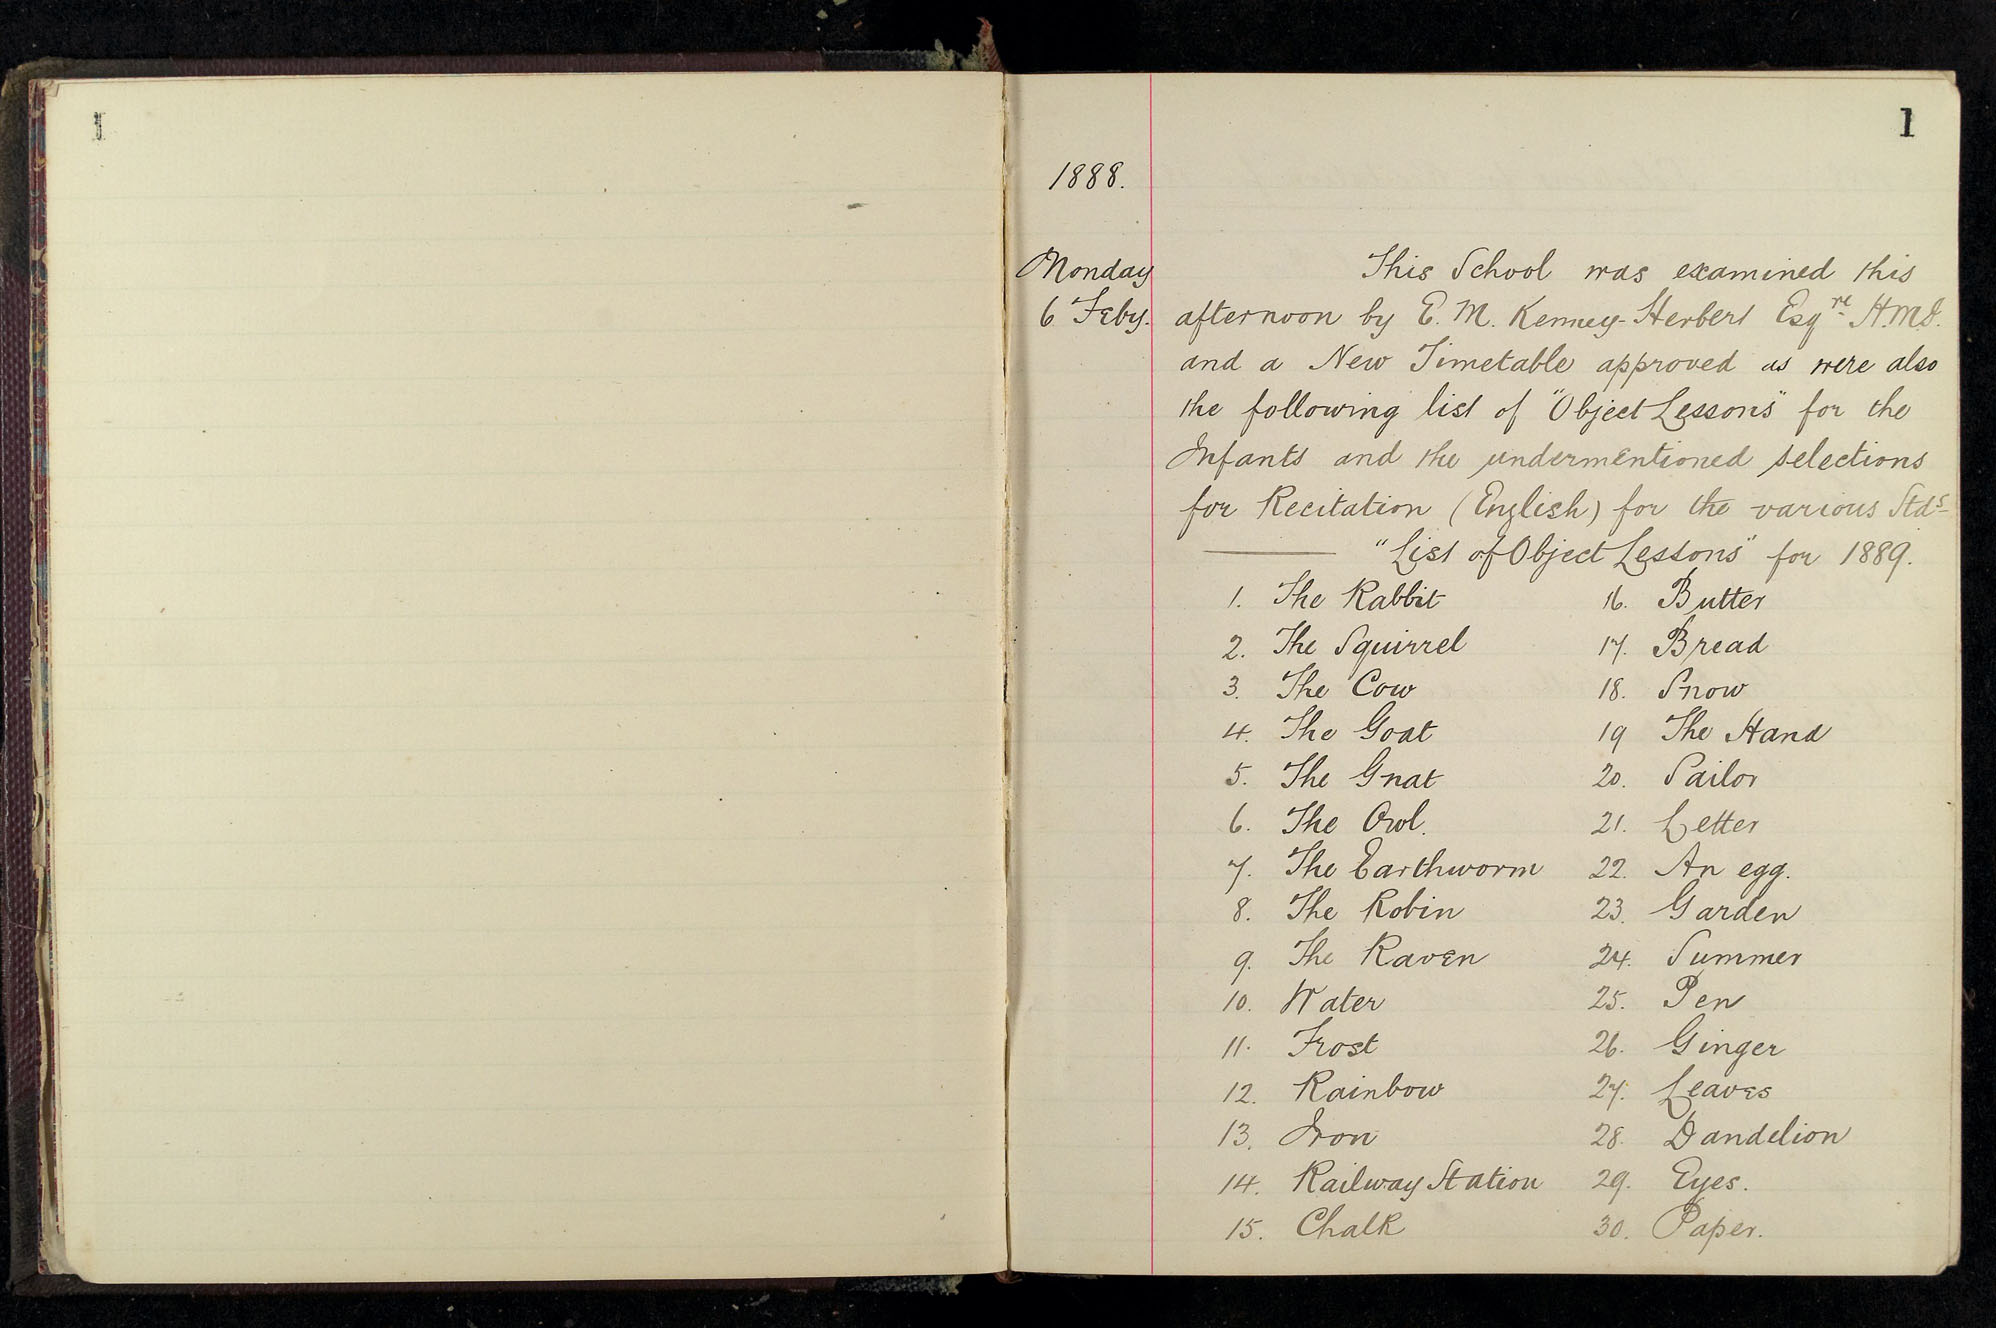 1
1
1888.
Monday
6 Feby.
This School was examined this
afternoon by E. M. Kenney-Herbert Esqre H.M.I.
and a New Timetable approved as were also
the following list of "Object Lessons" for the
Infants and the undermentioned selections
for Recitation (English) for the various Stds
"List of Object Lessons" for 1889.
1. The Rabbit 16. Butter
2. The Squirrel 17. Bread
3. The Cow 18. Snow
4. The Goat 19 The Hand
5. The Gnat 20. Sailor
6. The Owl. 21. Letter
7. The Earthworm 22. An egg.
8. The Robin 23. Garden
9. The Raven 24. Summer
10. Water 25. Pen
11. Frost 26. Ginger
12. Rainbow 27. Leaves
13. Iron 28. Dandelion
14. Railway Station 29. Eyes.
15. Chalk 30. Paper.